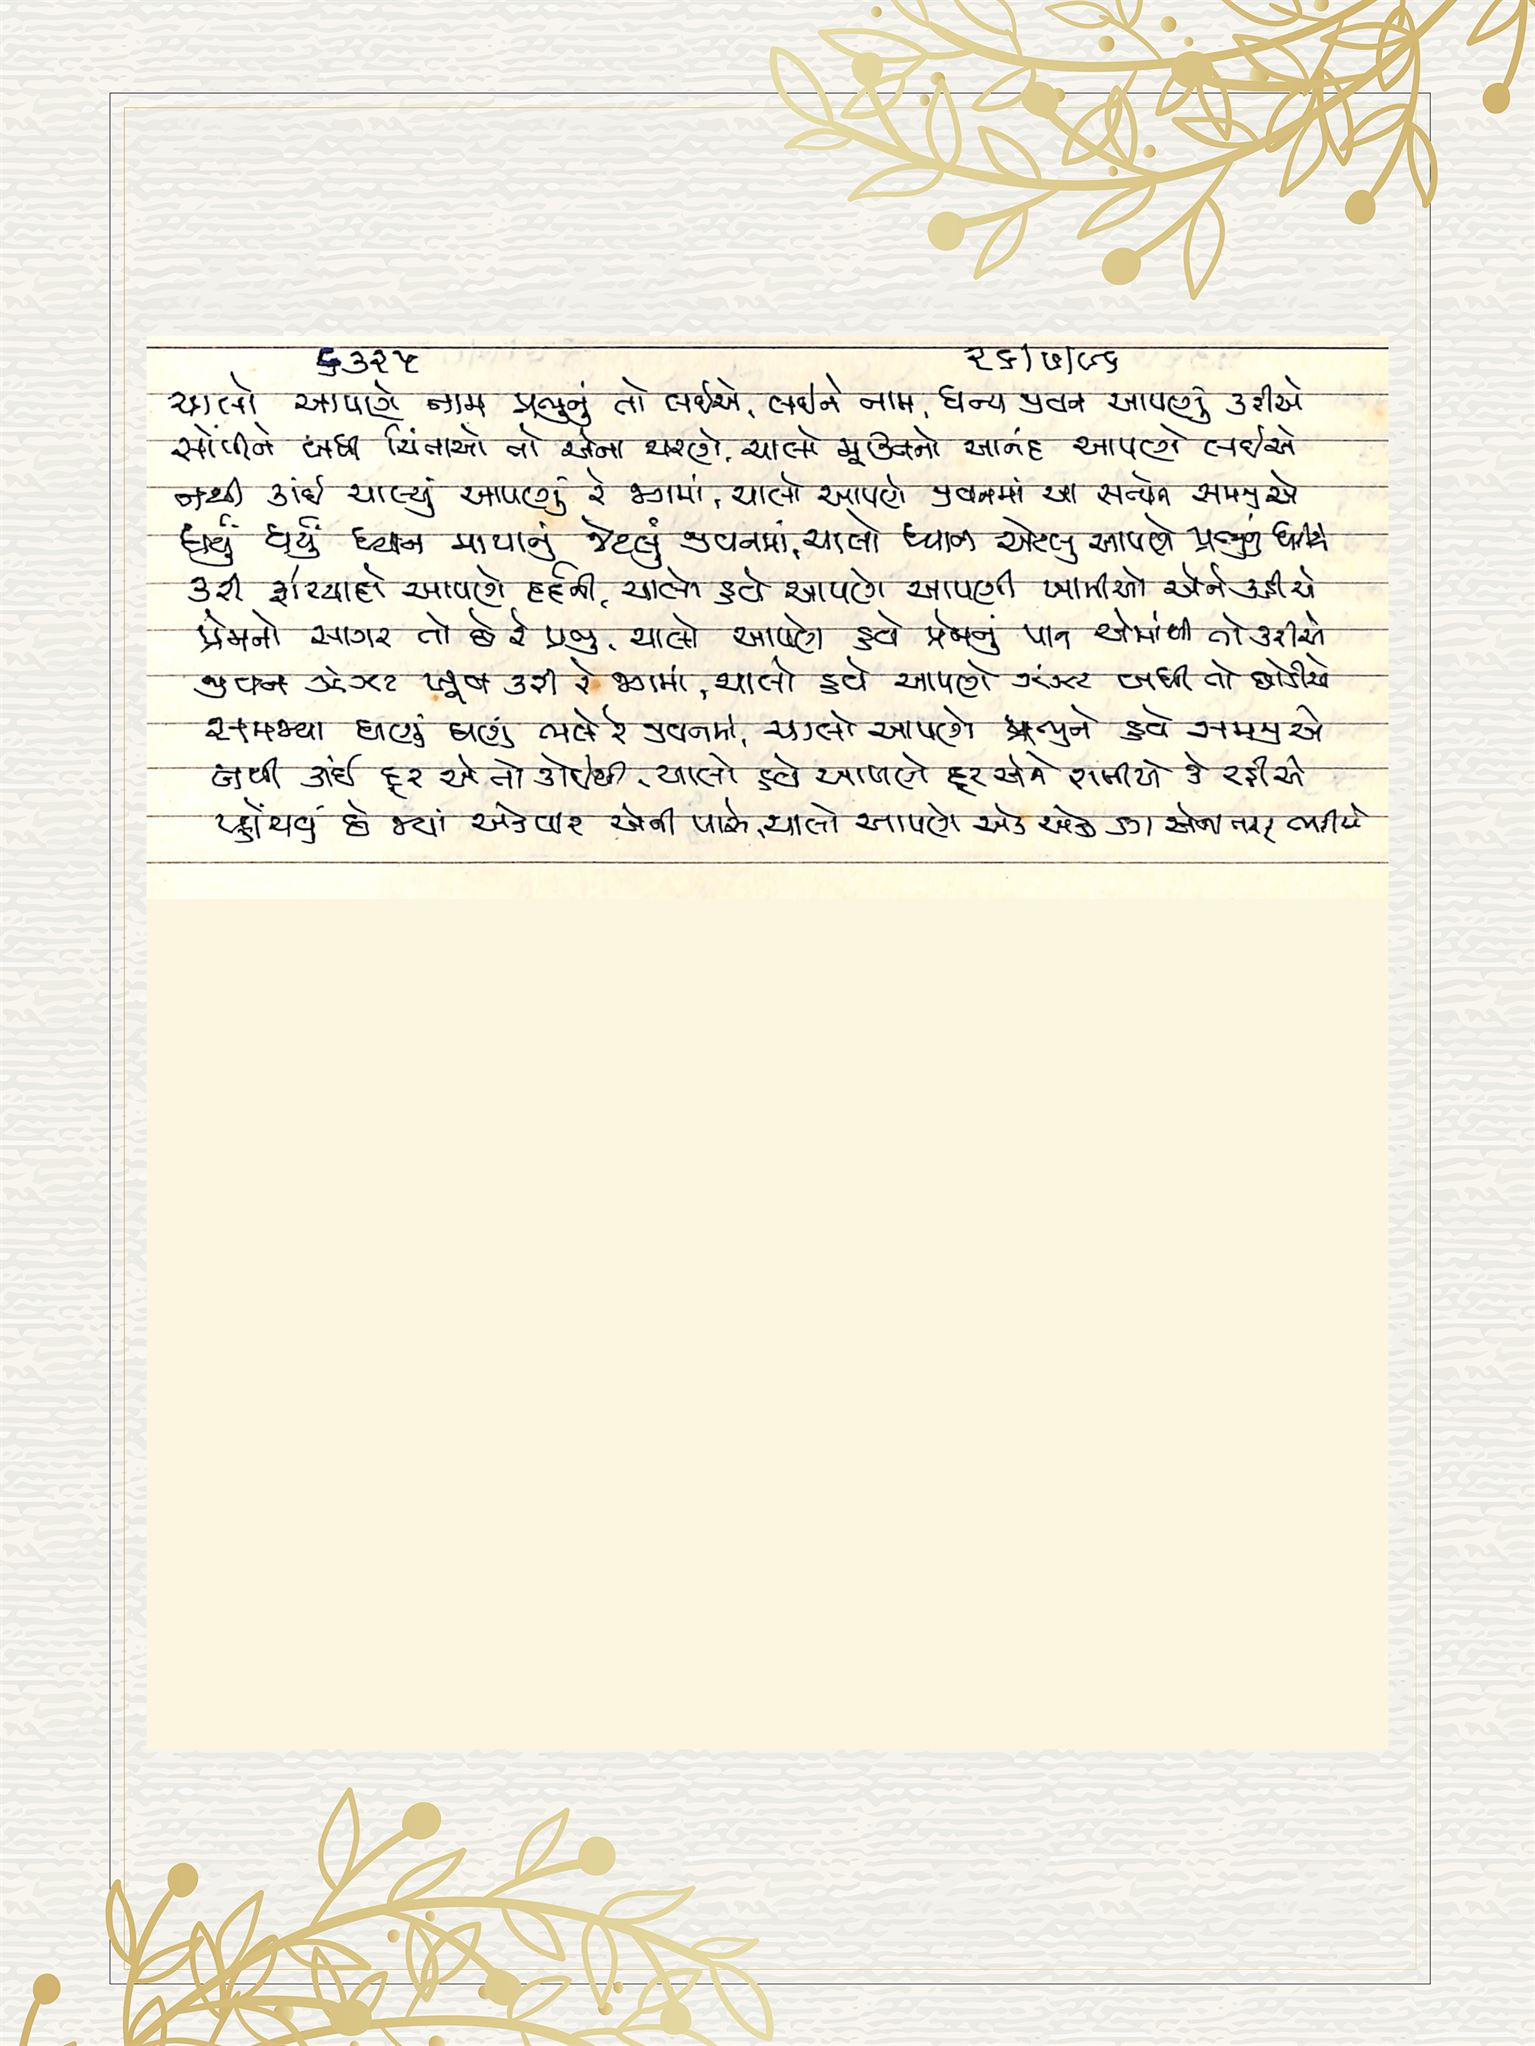 ૬૩૨૫ ૨૬/૭/૯૬
ચાલો આપણે નામ પ્રભુનું તો લઈએ, લઈને નામ, ધન્ય જીવન આપણું કરીએ
સોંપીને બધી ચિંતાઓ તો એના ચરણે, ચાલો મુક્તિનો આનંદ આપણે લઈએ
નથી કાંઈ ચાલ્યું આપણું રે જગમાં, ચાલો આપણે જીવનમાં આ સત્યને સમજીએ
ધર્યું ધર્યું ધ્યાન માયાનું જેટલું જીવનમાં, ચાલો ધ્યાન એટલું આપણે પ્રભુનું ધરીએ
કરી ફરિયાદો આપણે દર્દની, ચાલો હવે આપણે આપણી ખામીઓ એને કહીએ
પ્રેમનો સાગર તો છે રે પ્રભુ, ચાલો આપણે હવે પ્રેમનું પાન એમાંથી તો કરીએ
જીવન ઝંઝટ ખૂબ કરી રે જગમાં, ચાલો હવે આપણે ઝંઝટ બધી તો છોડીએ
સમજ્યા ઘણું ઘણું ભલે રે જીવનમાં, ચાલો આપણે પ્રભુને હવે સમજીએ
નથી કાંઈ દૂર એ તો કોઈથી, ચાલો હવે આપણે દૂર એને રાખીએ કે રહીએ
પહોંચવું છે જ્યાં એકવાર એની પાસે, ચાલો આપણે એક એક ડગ એના તરફ ભરીએ